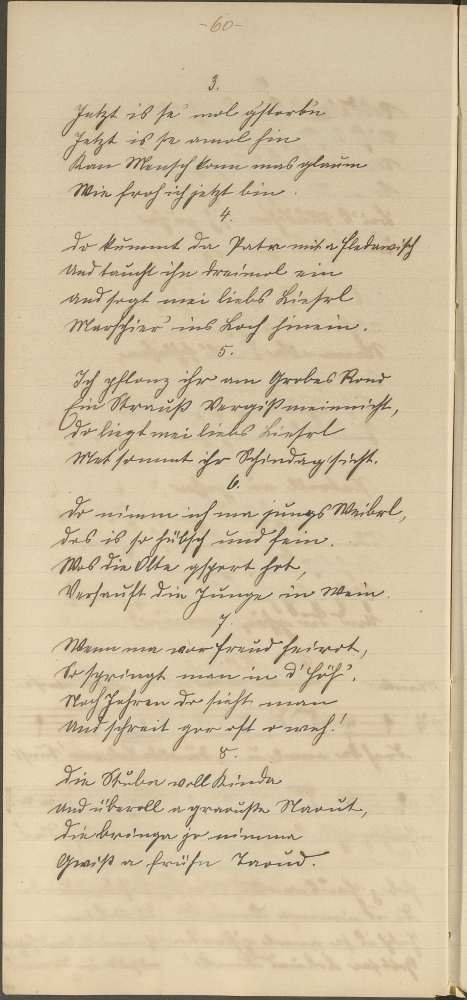 -60-
3.
Jetzt is se' mol g'storb'n
Jetzt is se amol hin
Kan Mensch konn mas glaum
Wie froh ich jetzt bin.
4.
Do kummt da Patr mit a Fledawisch
Und taucht ihn dreimol ein
und sogt mei liebs Liesrl
Marschier' ins Loch hinein.
5.
Ich pflanz ihr am Grobes Rond
Ein Strauß Vergißmeinnicht,
Do liegt mei liebs Liesrl
Met sommt ihr Schindag'sicht.
6.
Do nimm ich ma jungs Weibrl,
das is so hübsch und fein.
Wos die Olte gsport hot,
Versauft die Junge in Wein.
7.
Wenn ma vor Freud heirot,
So springt man in d' Höh'.
Noch Johren do sieht man
Und schreit gor oft o weh!
8.
Die Stube voll Kinda
und überoll a graouße Naout,
Die bringa jo nimma
Gwiß a frühn Taoud.